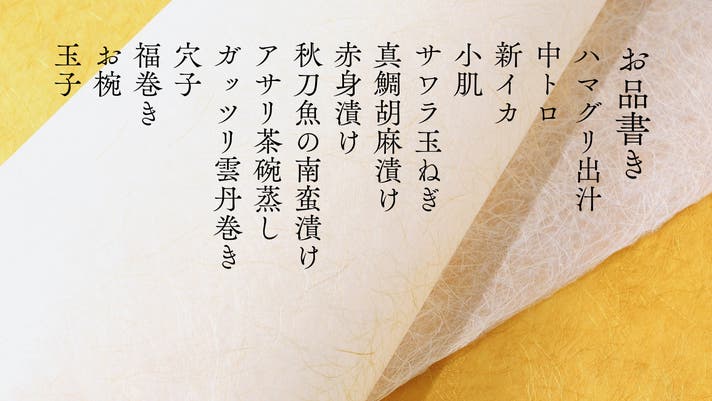 お品書き
ハマグリ出汁
中トロ
新イカ
小肌
サワラ玉ねぎ
真鯛胡麻漬け
赤身漬け
秋刀魚の南蛮漬け
アサリ茶碗蒸し
ガッツリ雲丹巻き
穴子
福巻き
お椀
玉子